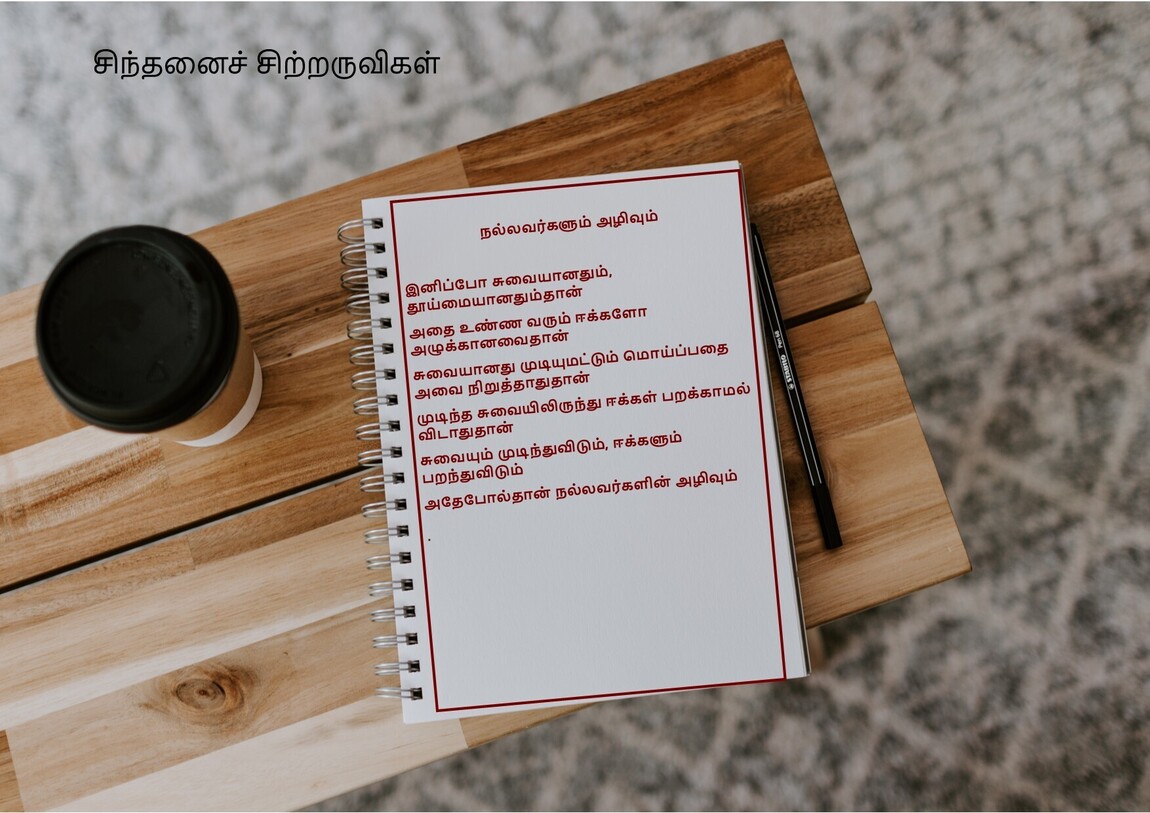 சிந்தனைச் சிற்றருவிகள்
நல்லவர்களும் அழிவும்
இனிப்போ சுவையானதும்,
தூய்மையானதும்தான்
அதை உண்ண வரும் ஈக்களோ
அழுக்கானவைதான்
சுவையானது முடியுமட்டும் மொய்ப்பதை
அவை நிறுத்தாதுதான்
முடிந்த சுவையிலிருந்து ஈக்கள் பறக்காமல்
விடாதுதான்
சுவையும் முடிந்துவிடும், ஈக்களும்
பறந்துவிடும்
அதேபோல்தான் நல்லவர்களின் அழிவும்
.
STABILO Pen 68